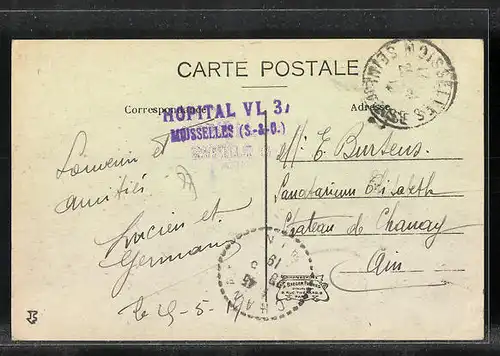 CARTE POSTALE
Correspondance
Adresse
HOPITAL VL 37
MOISSELLES (S.-&-O.)
MOISSELLES SEINE
Souvenir et
amitiés
Lucien et
Germain
le 29-5-
Mr E. Burtens
Sanatarium Elisabeth
Chateau de Chanay
Ain